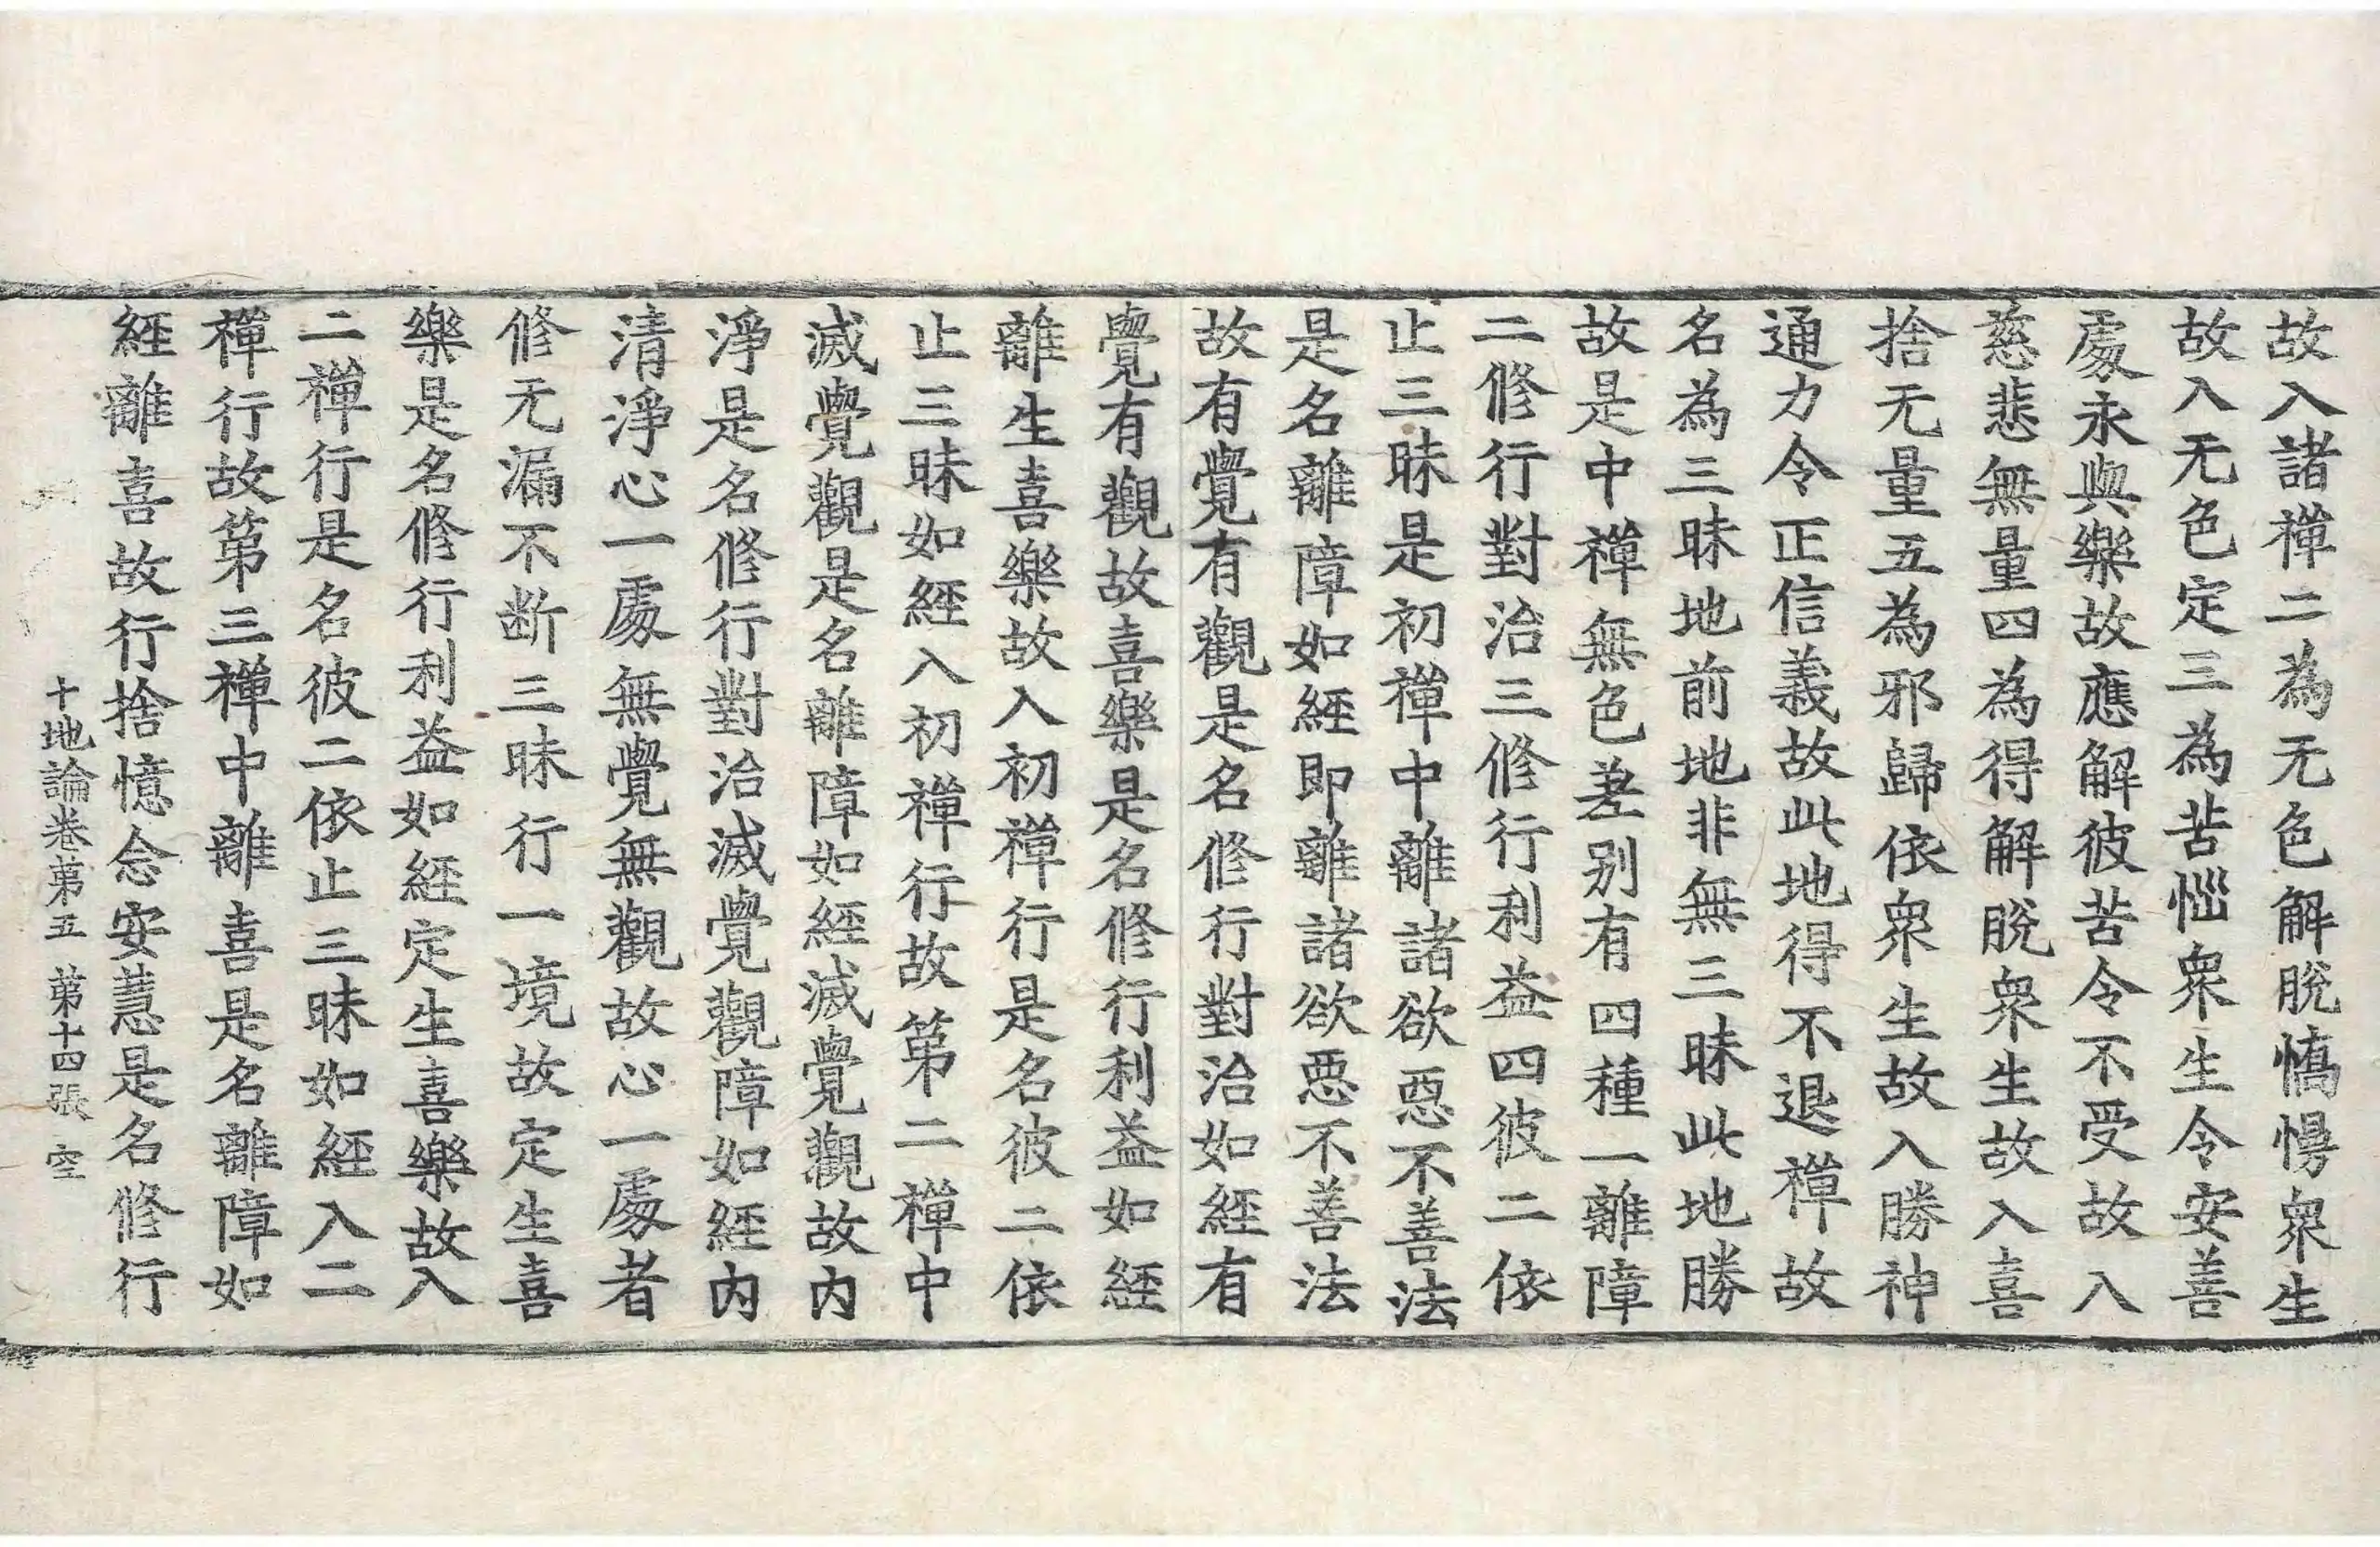 故入諸禪二為无色解脫憍慢衆生
故入无色定三為苦惱衆生令安善
處永與樂故應解彼苦令不受故入
慈悲無量四為得解脫衆生故入喜
捨无量五為邪歸依衆生故入勝神
通力令正信義故此地得不退禪故
名為三昧地前地非無三昧此地勝
故是中禪無色差别有四種一離障
二修行對治三修行利益四彼二依
止三昧是初禪中離諸欲惡不善法
是名離障如經即離諸欲惡不善法
故有覺有觀是名修行對治如經有
覺有觀故喜樂是名修行利益如經
離生喜樂故入初禪行是名彼二依
止三昧如經入初禪行故第二禪中
滅覺觀是名離障如經滅覺觀故内
淨是名修行對治滅覺觀障如經内
清淨心一處無覺無觀故心一處者
修无漏不断三昧行一境故定生喜
樂是名修行利益如經定生喜樂故入
二禪行是名彼二依止三昧如經入二
禪行故第三禪中離喜是名離障如
經離喜故行捨憶念安慧是名修行
十地論卷第五 第十四張 空